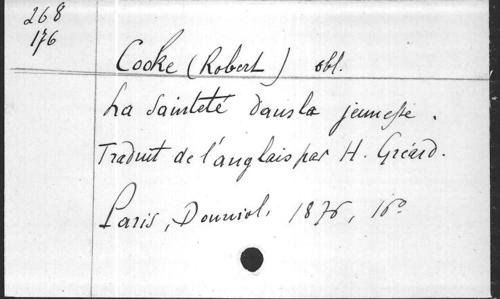 268
176
Cooke (Robert) obl.
La Sainteté dans la jeunesse.
Traduit de l'anglais par H. Gréard.
Paris, Douniol, 1876, 16°